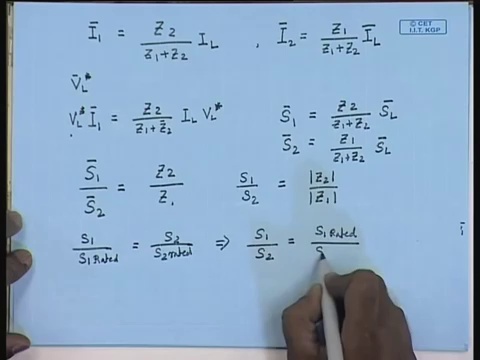 Ī₁ = Z₂/(Z₁+Z₂) I_L , Ī₂ = Z₁/(Z₁+Z₂) Ī_L
© CET
I.I.T. KGP
V̄_L*
V_L* Ī₁ = Z₂/(Z₁+Z₂) I_L V_L*
S̄₁ = Z₂/(Z₁+Z₂) S̄_L
S̄₂ = Z₁/(Z₁+Z₂) S̄_L
S̄₁/S̄₂ = Z₂/Z₁
S₁/S₂ = |Z₂|/|Z₁|
S₁/S₁ Rated = S₂/S₂ rated ⇒ S₁/S₂ = S₁ Rated/S